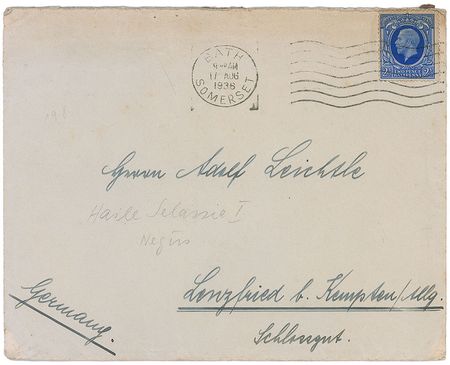 BATH
17 AUG
1936
SOMERSET
Herrn Adolf Leichtle
Haile Selassie I
Negus
Lenzfried b. Kempten/Allg.
Schlossgut.
Germany.